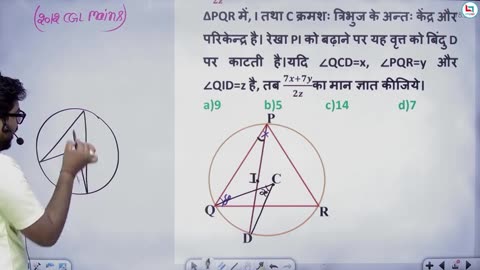 (2012 CGL Mains)
ΔPQR में, I तथा C क्रमशः त्रिभुज के अन्तः केंद्र और
परिकेन्द्र है। रेखा PI को बढ़ाने पर यह वृत्त को बिंदु D
पर काटती है।यदि ∠QCD=x, ∠PQR=y और
∠QID=z है, तब 7x+7y/2z का मान ज्ञात कीजिये।
a)9 b)5 c)14 d)7
P
I
C
x
Q
R
D